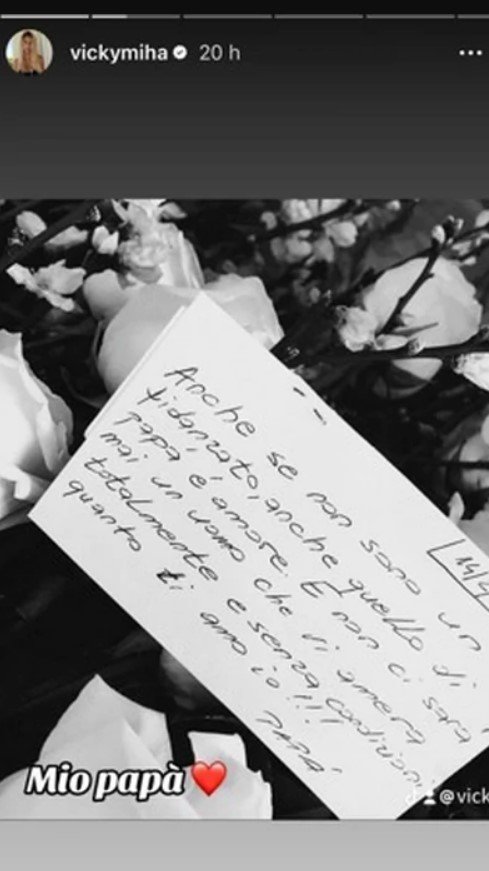 vickymiha 20 h
Anche se non sono un
fidanzato, anche quello di
papà è amore. E non ci sarà
mai un uomo che ti amerà
totalmente e senza condizioni
quanto ti amo io!!!
PAPA'
Mio papà
@vick